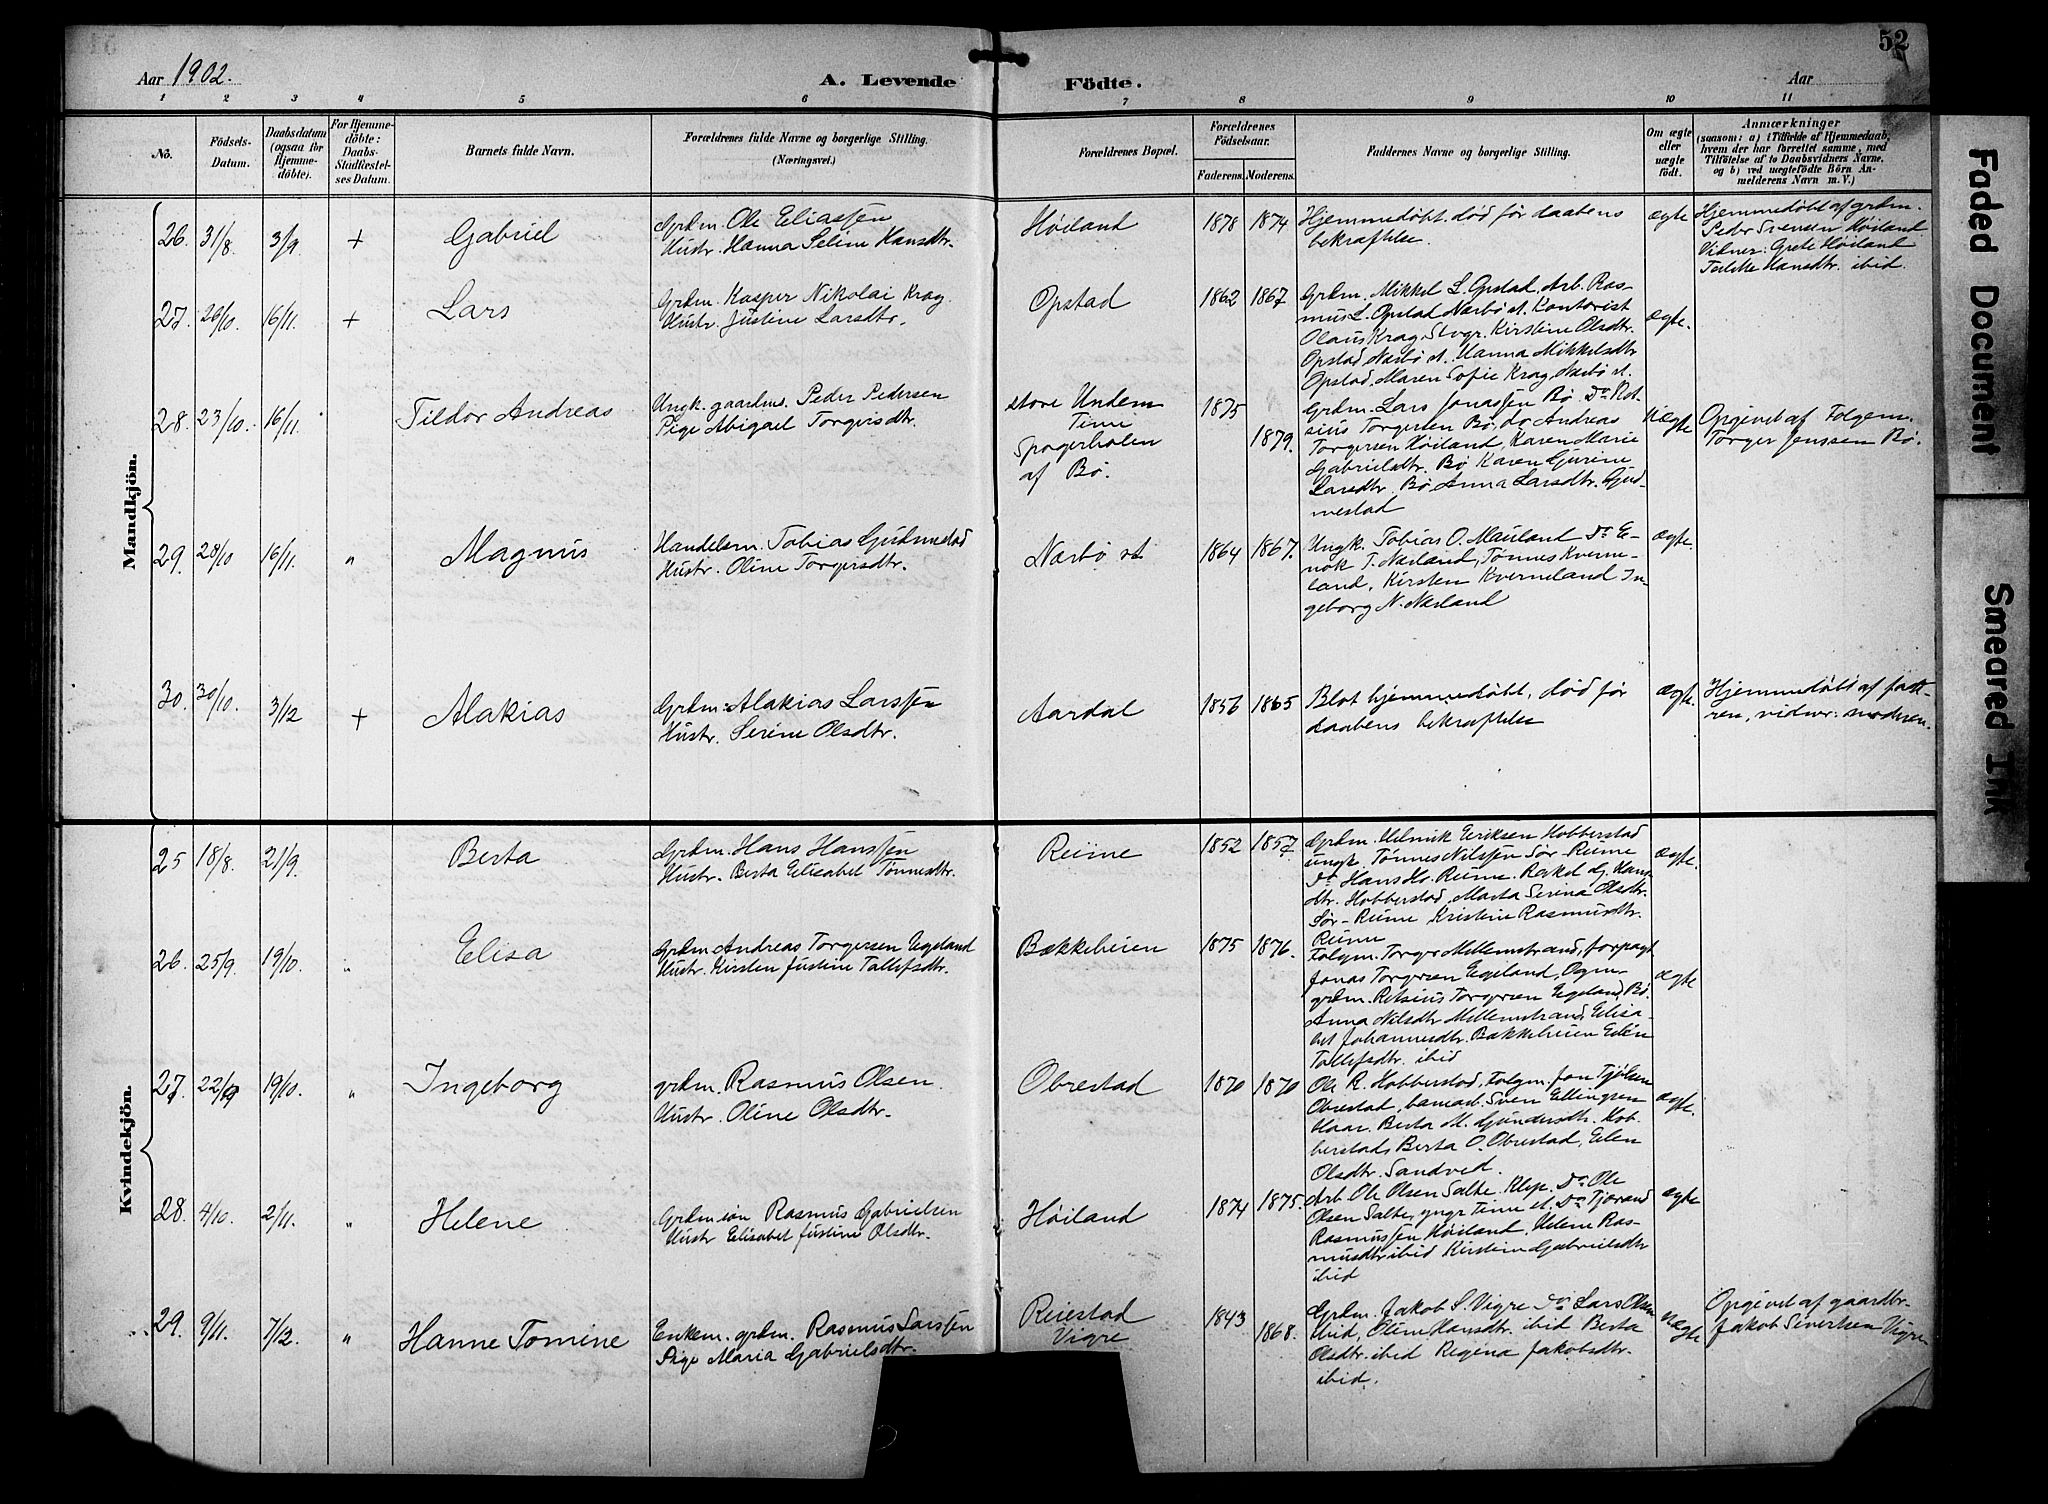 52
Aar 1902.
A. Levende Födte.
Aar
1 2 3 4 5 6 7 8 9 10 11
No.
Födsels-Datum.
Daabsdatum (ogsaa for Hjemme-döbte).
For Hjemme-döbte: Daabs-Stadfæstel-ses Datum.
Barnets fulde Navn.
Forældrenes fulde Navne og borgerlige Stilling.
(Næringsvei.)
Forældrenes Bopæl.
Forældrenes Födselsaar.
Faderens. Moderens.
Faddernes Navne og borgerlige Stilling.
Om ægte eller uægte födt.
Anmærkninger
(saasom: a) i Tilfælde af Hjemmedaab,
hvem der har forrettet samme, med
Tilföielse af to Daabsvidners Navne.
og b) ved uægtefödte Börn An-
melderens Navn m. V.)
Mandkjön.
26. 31/8 3/9 + Gabriel
Grdm. Ole Eliassen
Hustr. Hanna Seline Hansdtr.
Høiland 1878 1874
Hjemmedøbt, død før daabens
bekræftelse.
ægte
Hjemmedøbt af grdm.
Peder Svensen Høiland
Vidner: Grete Høiland
Hansdtr. ibid.
27. 26/10 16/11. + Lars
Grdm. Kasper Nikolai Krag
Hustr. Justine Larsdtr.
Opstad 1862 1867
Grdm. Mikkel L. Opstad, Arb. Ras-
mus L. Opstad Nærbø st. Kontorist
Olaus Krag, Stvgr. Kirstine Olsdtr.
Opstad, Nærbø st. Hanna Mikkelsdtr
Opstad, Maren Sofie Krag, Nærbø st.
ægte.
28. 23/10. 16/11. Tildor Andreas
Ungk. gaardms. Peder Pedersen
Pige Abigael Torgersdtr.
store Undem
Time
af Bø.
1875 1879.
Grdm. Lars Jonassen Bø. Do Ret-
sius Torgersen Bø, do Andreas
Torgersen Høiland, Karen Marie
Gabrielsdtr. Bø Karen Gurine
Larsdtr. Bø, Anna Larsdtr. Gud-
mestad
Uægte
Opgivet af Folgem.
Torger Jenssen Bø.
29. 28/10 16/11. " Magnus
Handelsm. Tobias Gudmestad
Hustr. Oline Torgersdtr.
Nærbø st 1864 1867.
Ungk. Tobias O. Mauland Do E-
nok T. Nærland, Tønnes Kverne-
land, Kirsten Kverneland In-
geborg N. Nærland
ægte.
30. 30/10. 3/12 + Malakias
Grdm. Malakias Larssen
Hustr. Serine Olsdtr.
Aardal 1856 1865
Blot hjemmedøbt, død før
daabens bekræftelse
ægte.
Hjemmedøbt af fade-
ren, vidner: moderen.
Kvindekjön.
25 18/8. 21/9. Berta
Grdm. Hans Hanssen
Hustr. Berta Elisabet Tønnesdtr.
Reime 1852 1857
Grdm. Helmik Eriksen Hobberstad
ungk. Tønnes Nilssen Sør-Reime
Do Hans Hs. Reime. Rakel dg. Hans-
dtr. Hobberstad, Marta Serina Olsdtr.
Sør-Reime Kristine Rasmusdtr.
Reime
ægte.
26. 25/9. 19/10. " Elisa
Grdm. Andreas Torgersen Egeland
Hustr. Kirsten Justine Tollefsdtr.
Bækkeheien 1875 1876.
Folgm. Torger Mellemstrand, forpagt
Jonas Torgersen Egeland, Ogm-
grdm. Retsius Torgersen Egeland, Bø.
Anna Nilsdtr Mellemstrand, Elisa-
bet Johannesdtr. Bækkeheien Elen
Tollefsdtr. ibid
ægte
27. 22/9 19/10. " Ingeborg
grdm. Rasmus Olsen.
Hustr. Oline Olsdtr.
Obrestad 1870 1870
Ole R. Hobberstad, Folgm. Jon Tjølsen
Obrestad, banearb. Sven Ellingsen
Haar. Berta M. Gundersdtr. Hob-
berstad, Berta O. Obrestad, Elen
Olsdtr. Sandved.
ægte.
28. 4/10. 2/11. " Helene
Grdm.søn Rasmus Gabrielsen
Hustr Elisabet Justine Olsdtr.
Høiland 1874 1875.
Arb. Ole Olsen Salte, Klep. Do Ole
Olsen Salte, yngr Time st. Do Tjorand
Rasmussen Høiland, Helene Ras-
musdtr ibid Kirstine Gabrielsdtr
ibid
ægte
29. 9/11. 7/12. " Hanne Tomine
Enkem. grdm. Rasmus Larssen
Pige Maria Gabrielsdtr.
Reiestad
Vigre
1843 1868.
Grdm. Jakob S. Vigre Do Lars Olsen
ibid, Oline Hansdtr. ibid Berta
Olsdtr. ibid Regina Jakobsdtr.
ibid.
Uægte
Opgivet af gaardbr.
Jakob Sivertsen Vigre
Faded Document
Smeared Ink